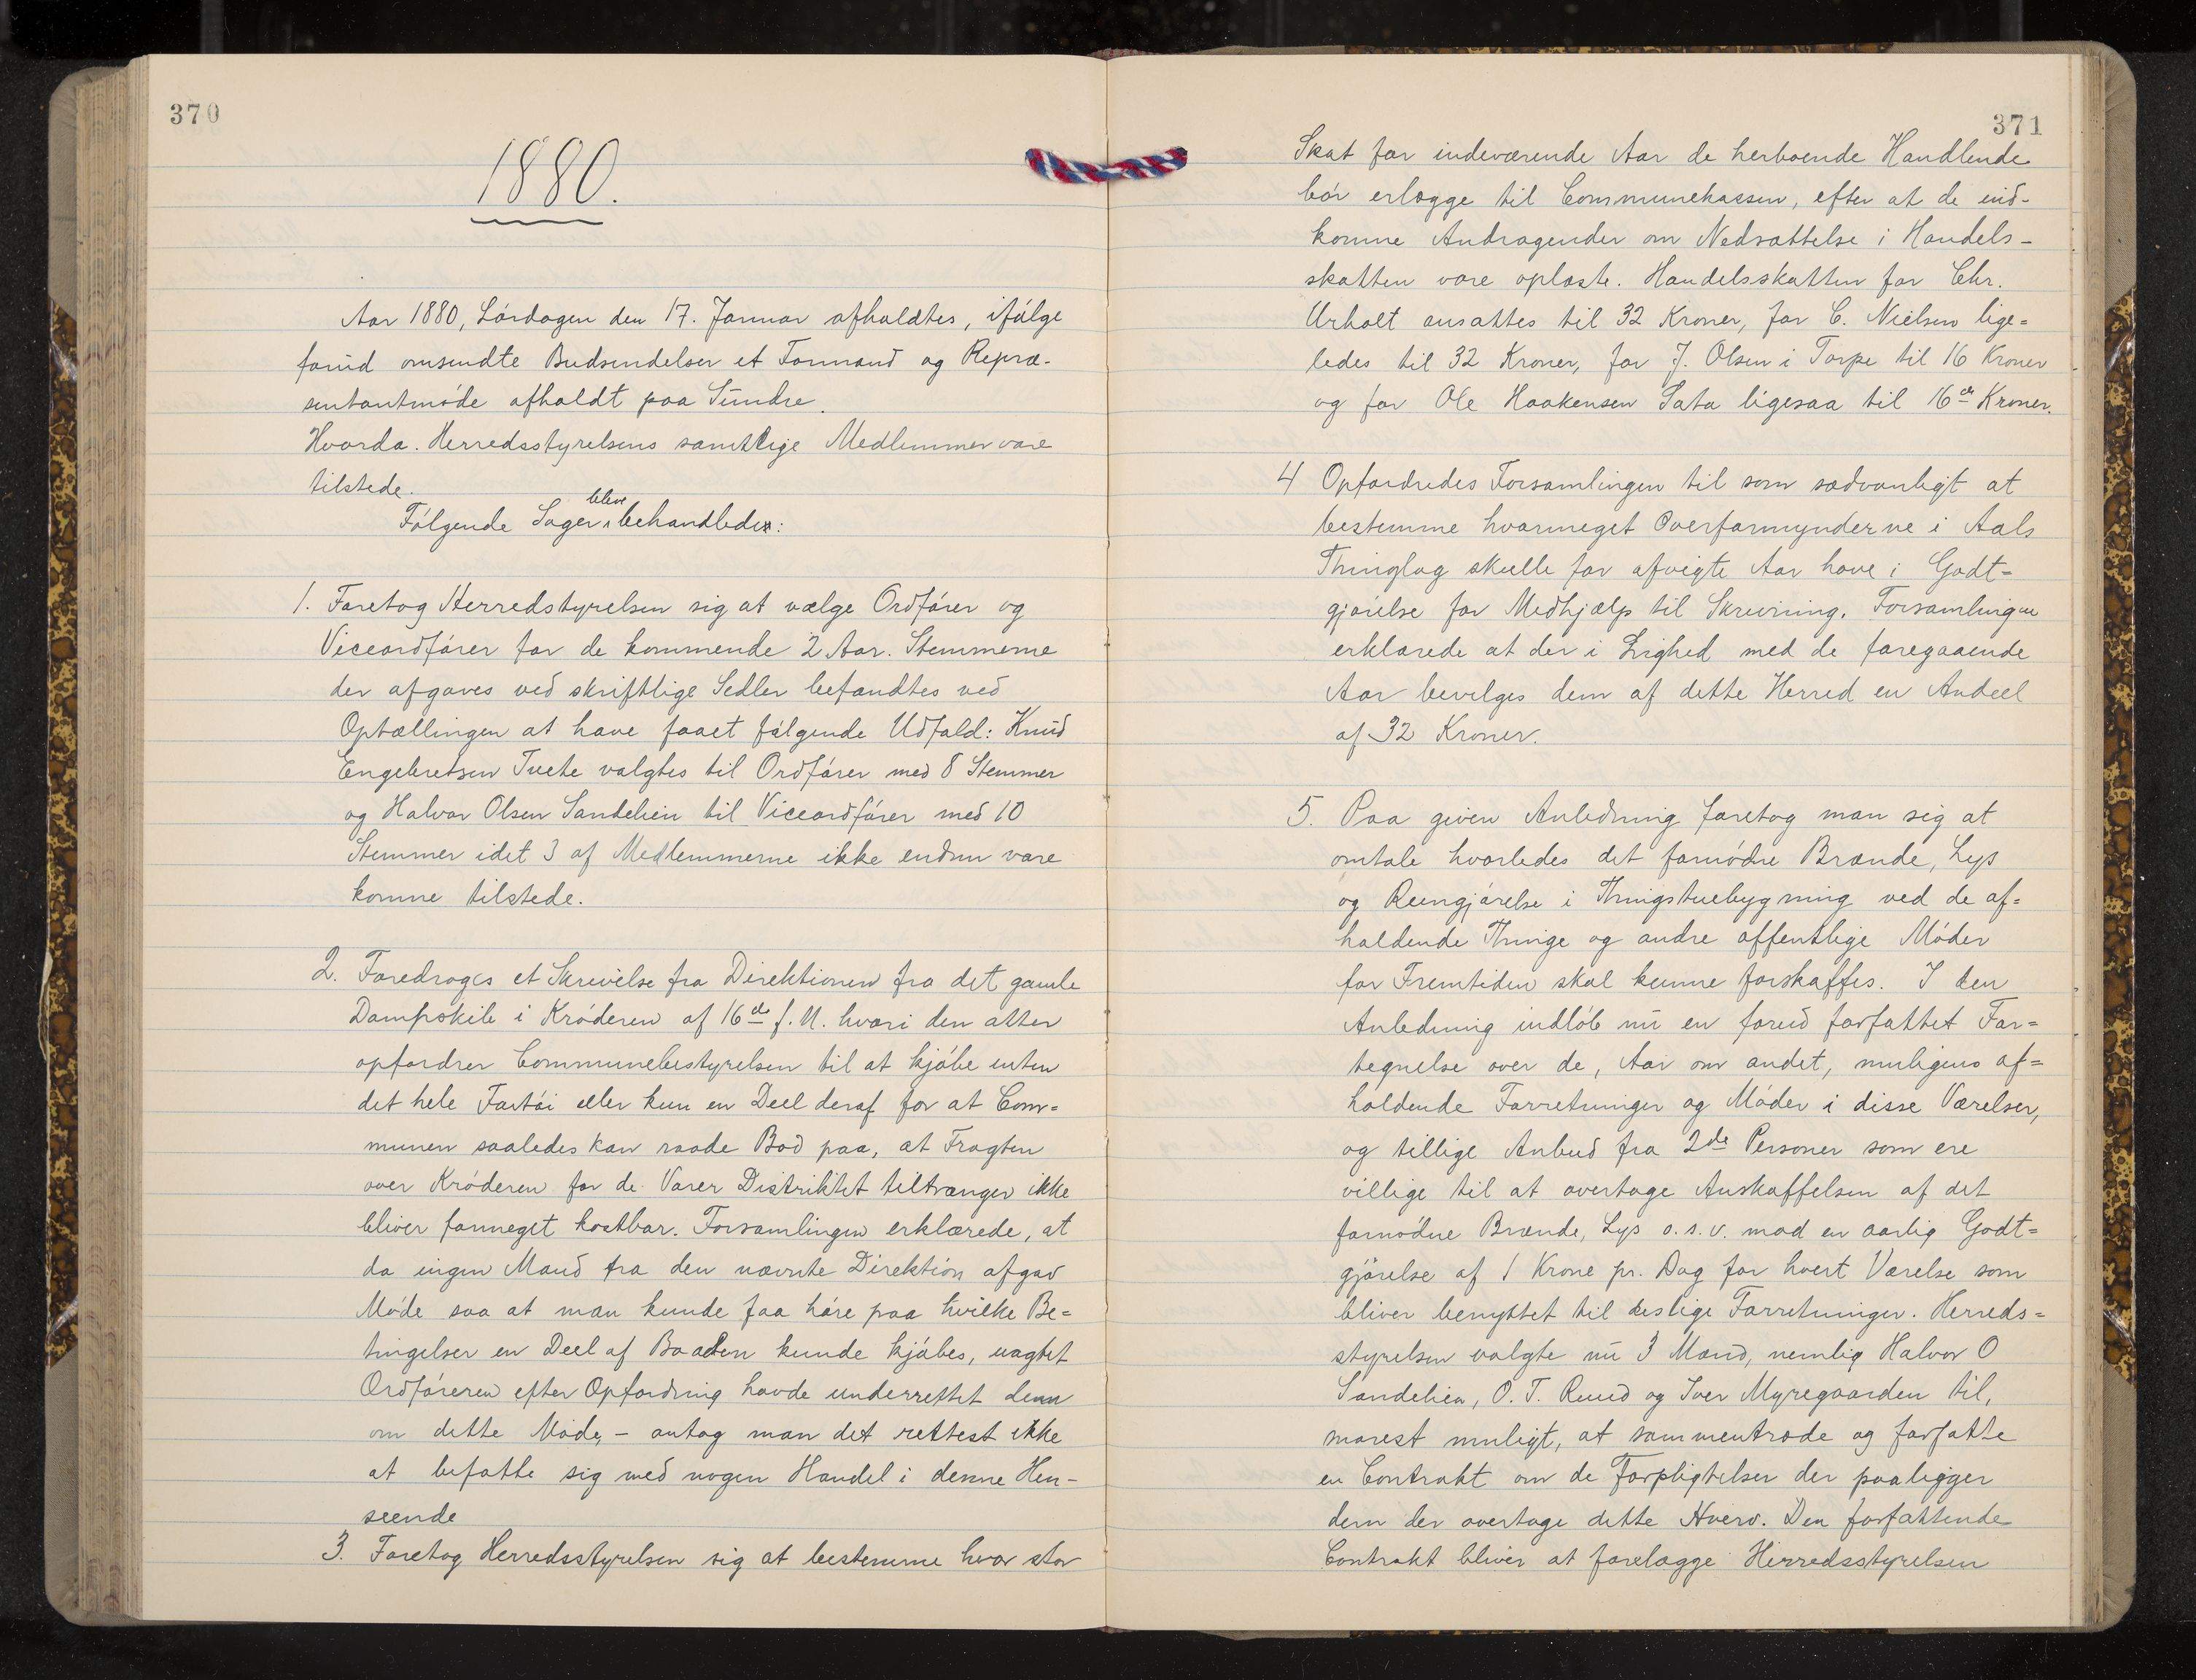 370
1880.
Aar 1880, Lördagen den 17. Januar afholdtes, ifölge
forud omsendte Budsendelser et Formand og Repræ-
sentantmöde afholdt paa Sundre.
Hvorda. Herredsstyrelsens samtlige Medlemmer vare
tilstede.
bleve
Fölgende Sager behandlede:
1. Foretog Herredstyrelsen sig at vælge Ordförer og
Viceordförer for de kommende 2 Aar. Stemmerne
der afgaves ved skriftlige Sedler befandtes ved
Optællingen at have faaet fölgende Udfald: Knud
Engebretsen Tvete valgtes til Ordförer med 8 Stemmer
og Halvor Olsen Sandelien til Viceordförer med 10
Stemmer idet 3 af Medlemmerne ikke endnu vare
komne tilstede.
2. Foredroges et Skrivelse fra Direktionen fra det gamle
Dampskib i Kröderen af 16de f. M. hvori den atter
opfordrer Communebestyrelsen til at kjöbe enten
det hele Fartöi eller kun en Deel deraf for at Com=
munen saaledes kan raade Bod paa, at Fragten
over Kröderen for de Varer Distriktet tiltrænger ikke
bliver formeget kostbar. Forsamlingen erklærede, at
da ingen Mand fra den nævnte Direktion afgav
Möde saa at man kunde faa höre paa hvilke Be=
tingelser en Deel af Baaden kunde kjöbes, uagtet
Ordföreren efter Opfordring havde underrettet dem
om dette Möde, - antog man det rettest ikke
at befatte sig med nogen Handel i denne Hen-
seende
3. Foretog Herredsstyrelsen sig at bestemme hvor stor
371
Skat for indeværende Aar de herboende Handlende
bör erlægge til Communekassen, efter at de ind-
komne Andragender om Nedsættelse i Handels-
skatten vare oplæste. Handelsskatten for Chr.
Urholt ansattes til 32 Kroner, for C. Nielsen lige=
ledes til 32 Kroner, for J. Olsen i Torpe til 16 Kroner
og for Ole Haakensen Sata ligesaa til 16de Kroner.
4 Opfordredes Forsamlingen til som sædvanligt at
bestemme hvormeget Overformynderne i Aals
Thinglag skulle for afvigte Aar have i Godt=
gjörelse for Medhjælp til Skrivning. Forsamlingen
erklærede at der i Lighed med de foregaaende
Aar bevilges dem af dette Herred en Andeel
af 32 Kroner.
5. Paa given Anledning foretog man sig at
omtale hvorledes det fornödne Brænde, Lys
og Reengjörelse i Thingstuebygning ved de af=
holdende Thinge og andre offentlige Möder
for Fremtiden skal kunne forskaffes. I den
Anledning indlöb nu en forud forfattet For=
tegnelse over de, Aar om andet, muligens af=
holdende Forretninger og Möder i disse Værelser,
og tillige Anbud fra 2de Personer som ere
villige til at overtage Anskaffelsen af det
fornödne Brænde, Lys o.s.v. mod en aarlig Godt=
gjörelse af 1 Krone pr. Dag for hvert Værelse som
bliver benyttet til deslige Forretninger. Herreds=
styrelsen valgte nu 3 Mænd, nemlig Halvor O
Sandelien, O. T. Ruud og Iver Myregaarden til,
snarest muligt, at sammentræde og forfatte
en Contrakt om de Forpligtelser der paaligger
dem der overtage dette Hverv. Den forfattende
Contrakt bliver at forelægge Herredsstyrelsen